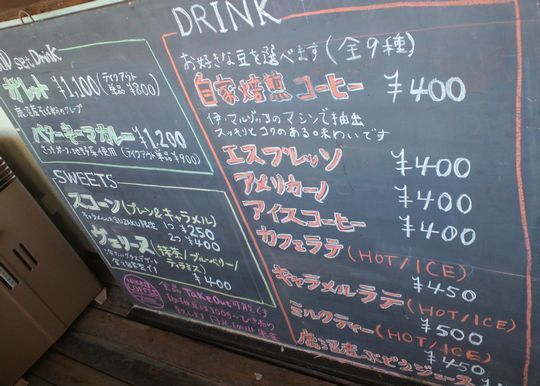 set Drink
ガレット ¥1,100 (テイクアウト 単品 ¥800)
バターキーマカレー ¥1,200
(テイクアウト単品 ¥900)
SWEETS
スコーン (プレーン&キャラメル)
1コ ¥250
2コ ¥400
ヴェリーヌ (抹茶/ブルーベリー/
ティラミス)
¥400
全品 Take Out 可能です
DRINK
お好きな豆を選べます (全9種)
自家焙煎コーヒー ¥400
伊・マルゾッコのマシンで抽出
スッキリとコクのある味わいです
エスプレッソ ¥400
アメリカーノ ¥400
アイスコーヒー ¥400
カフェラテ (HOT/ICE)
¥450
キャラメルラテ (HOT/ICE)
¥500
ミルクティー (HOT/ICE)
¥450